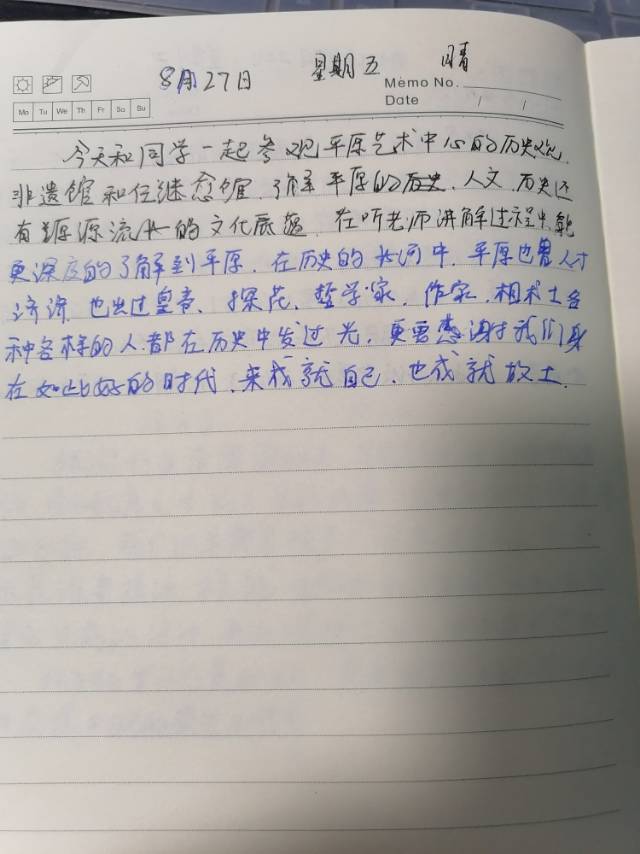 8月27日 星期五 晴
Memo No.
Mo Tu We Th Fr Sa Su
Date / /
今天和同学一起参观平原艺术中心的历史
非遗馆和任继愈馆.了解平原的历史.人文.历史还
有源源流长的文化底蕴.在听老师讲解过程中.能
更深度的了解到平原.在历史的长河中.平原也曾人才
济济.也出过皇帝、探花、哲学家.作家.相术士各
种各样的人.都在历史中发过光.更要感谢我们身
在如此好的时代.来成就自己.也成就故土.